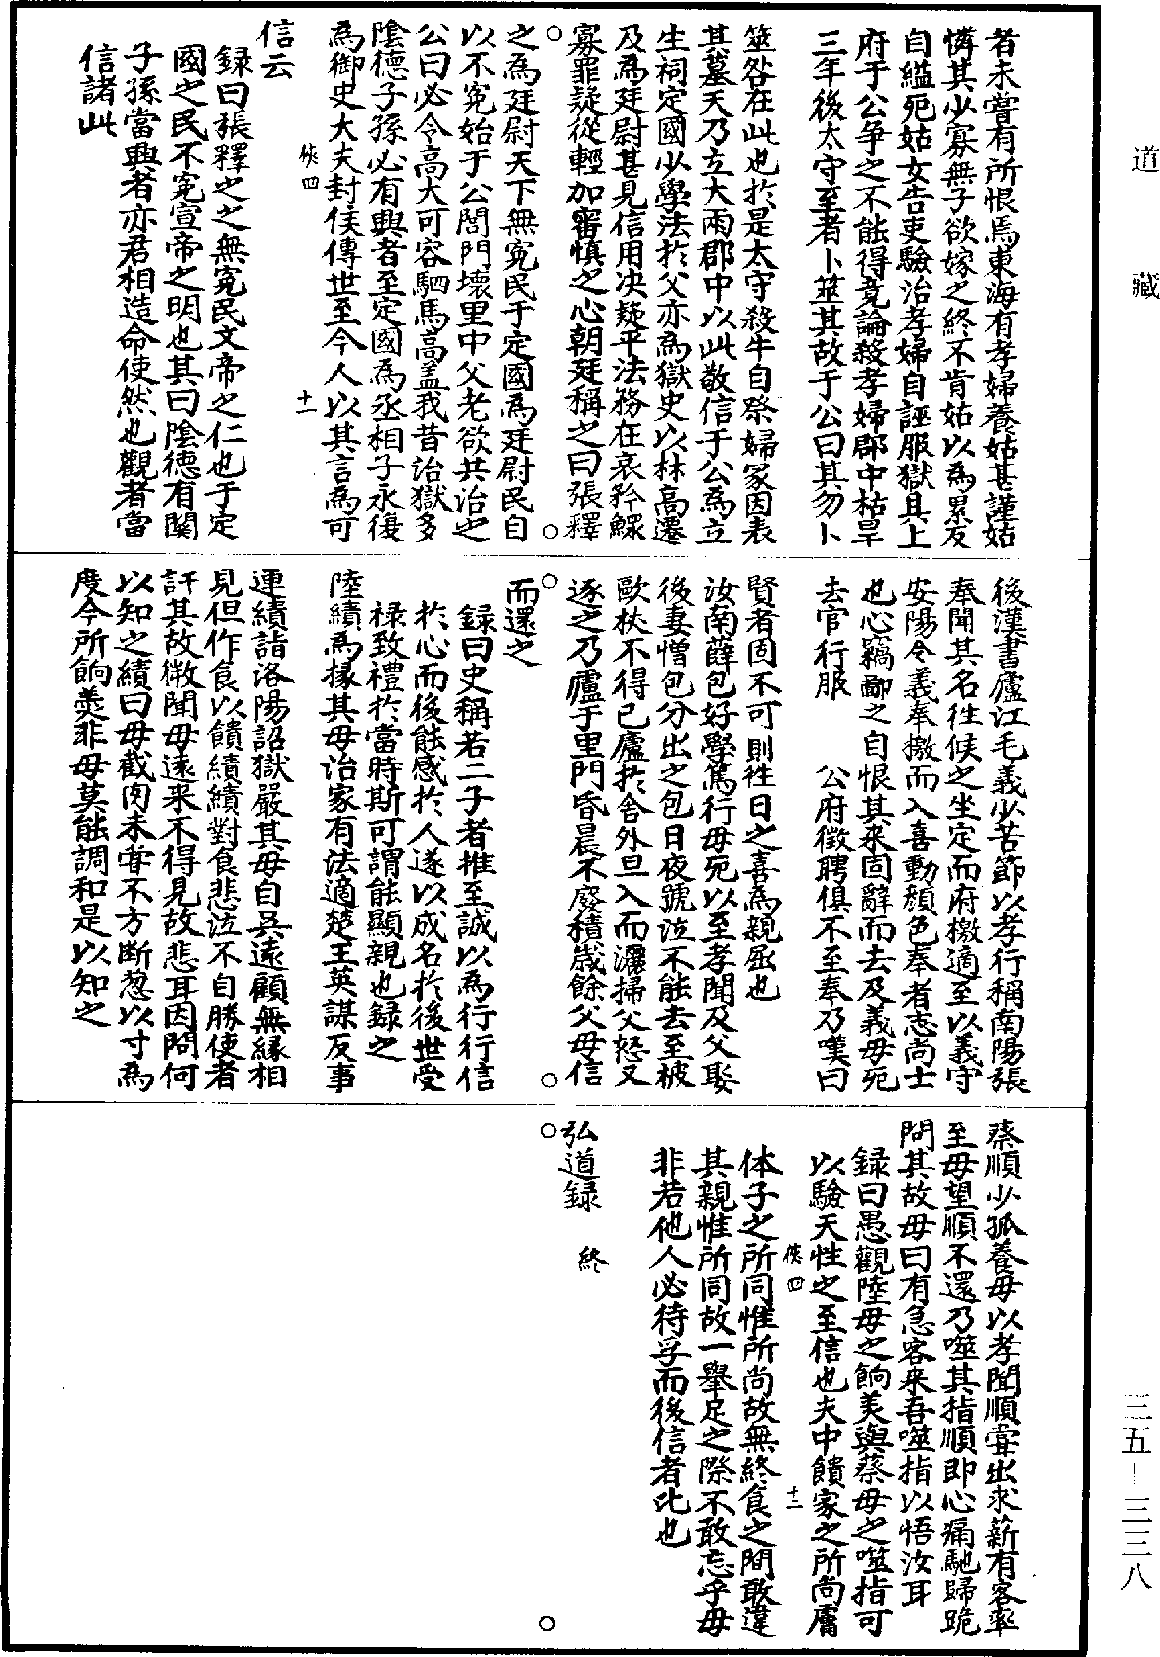 道藏
者未嘗有所恨焉東海有孝婦養姑甚謹姑
憐其少寡無子欲嫁之終不肯姑以為累友
自縊死姑女告吏驗治孝婦自誣服獄具上
府于公爭之不能得竟論殺孝婦郡中枯旱
三年後太守至者卜筮其故于公曰其勿卜
筮咎在此也於是太守殺牛自祭婦冢因表
其墓天乃立大雨郡中以此敬信于公為立
生祠定國少學法於父亦為獄史以林高遷
及為廷尉甚見信用決疑平法務在哀矜鰥
寡罪疑從輕加審慎之心朝廷稱之曰張釋
之為廷尉天下無冤民于定國為廷尉民自
以不冤始于公閭門壞里中父老欲共治之
公曰必令高大可容駟馬高盖我昔治獄多
陰德子孫必有興者至定國為丞相子永復
為御史大夫封侯傳世至今人以其言為可
俠四 十一
信云
録曰張釋之之無冤民文帝之仁也于定
國之民不冤宣帝之明也其曰陰德有闗
子孫當興者亦君相造命使然也觀者當
信諸此
後漢書廬江毛義少苦節以孝行稱南陽張
奉聞其名徃候之坐定而府檄適至以義守
安陽令義奉檄而入喜動顔色奉者志尚士
也心竊鄙之自恨其來固辭而去及義毋死
去官行服 公府徵聘俱不至奉乃嘆曰
賢者固不可則徃日之喜為親屈也
汝南薛包好學篤行毋死以至孝聞及父娶
後妻憎包分出之包日夜號泣不能去至被
歐杖不得已廬於舍外旦入而灑掃父怒又
逐之乃廬于里門昏晨不廢積歲餘父毋信
而還之
録曰史稱若二子者推至誠以為行行信
於心而後能感於人遂以成名於後世受
禄致禮於當時斯可謂能顯親也録之
陸續為掾其毋治家有法適楚王英謀反事
連續詣洛陽詔獄嚴其毋自呉逺顧無縁相
見但作食以饋續續對食悲泣不自勝使者
訝其故㣲聞毋逺來不得見故悲耳因問何
以知之續曰毋截肉未甞不方斷葱以寸為
度今所餉羮非毋莫能調和是以知之
蔡順少孤養毋以孝聞順甞出求薪有客卒
至毋望順不還乃噬其指順即心痛馳歸跪
問其故毋曰有急客來吾噬指以悟汝耳
録曰愚觀陸毋之餉羙與蔡毋之噬指可
以驗天性之至信也夫中饋家之所尚膚
俠四 十二
体子之所同惟所尚故無終食之間敢違
其親惟所同故一舉足之際不敢忘乎毋
非若他人必待孚而後信者比也
弘道録 終
三五—三三八